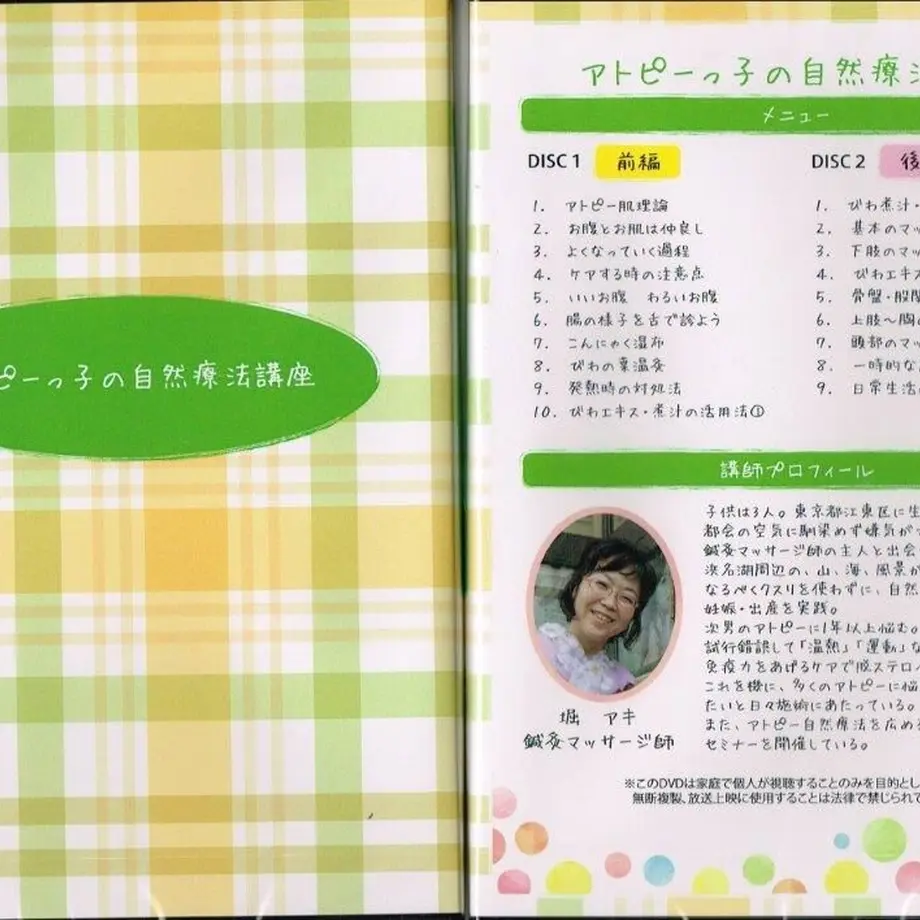 ピーっ子の自然療法講座
アトピーっ子の自然療法
メニュー
DISC 1 前編
1. アトピー肌理論
2. お腹とお肌は仲良し
3. よくなっていく過程
4. ケアする時の注意点
5. いいお腹 わるいお腹
6. 腸の様子を舌で診よう
7. こんにゃく湿布
8. びわの葉温灸
9. 発熱時の対処法
10. びわエキス・煮汁の活用法①
DISC 2 後
1. びわ煮汁・
2. 基本のマッ
3. 下肢のマッ
4. びわエキス
5. 骨盤・股関
6. 上肢〜胸の
7. 頭部のマッ
8. 一時的な
9. 日常生活
講師プロフィール
子供は3人。東京都江東区に生
都会の空気に馴染めず嫌気がさ
鍼灸マッサージ師の主人と出会
浜名湖周辺の、山、海、風景が
なるべくクスリを使わずに、自然
妊娠・出産を実践。
次男のアトピーに1年以上悩む。
試行錯誤して「温熱」「運動」な
免疫力をあげるケアで脱ステロ
これを機に、多くのアトピーに悩
たいと日々施術にあたっている。
また、アトピー自然療法を広める
セミナーを開催している。
堀 アキ
鍼灸マッサージ師
※このDVDは家庭で個人が視聴することのみを目的とし
無断複製、放送上映に使用することは法律で禁じられて